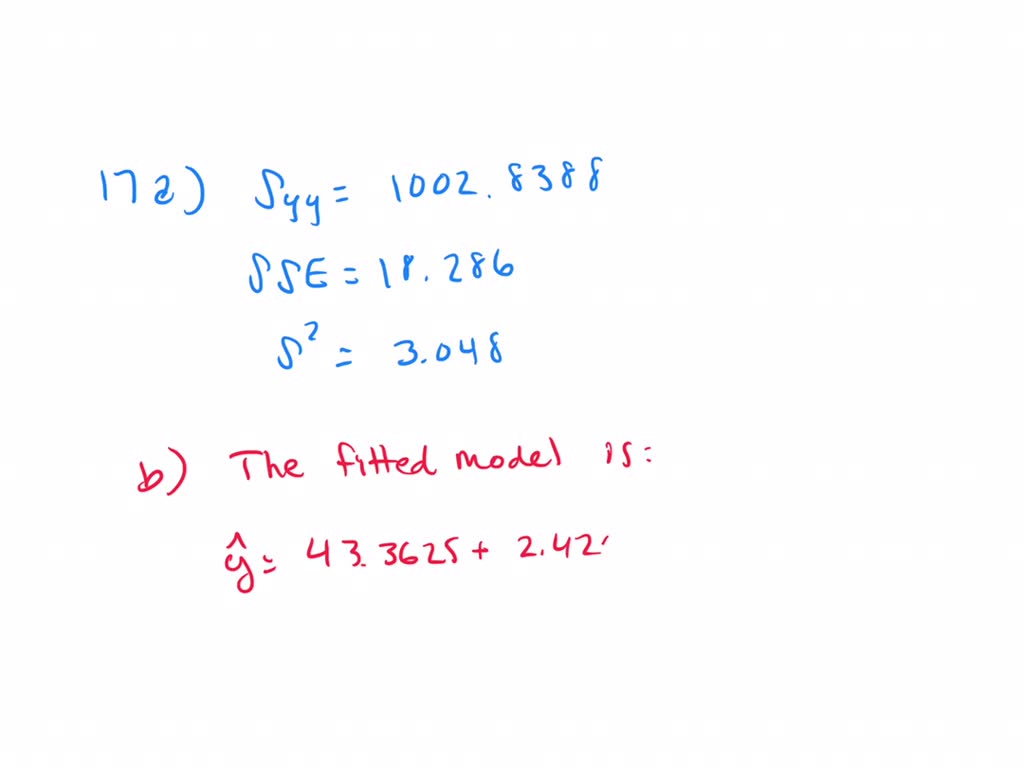 17a) Syy = 1002.8388
SSE = 18.286
S² = 3.048
b) The fitted model is:
ŷ = 43.3625 + 2.42